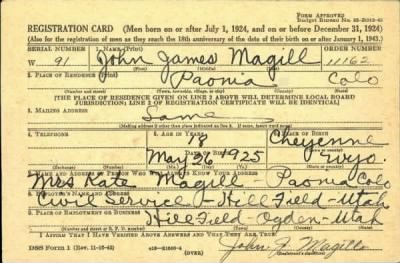 FORM APPROVED
REGISTRATION CARD (Men born on or after July 1, 1924, and on or before December 31, 1924)
(Also for the registration of men as they reach the 18th anniversary of the date of their birth on or after January 1, 1943.)
SERIAL NUMBER 1. NAME (Print) ORDER NUMBER
W 91 John James Magill 11162
(First) (Middle) (Last)
2. PLACE OF RESIDENCE (Print)
Paonia Colo
(Number and street) (Town, township, village, or city) (County) (State)
[THE PLACE OF RESIDENCE GIVEN ON LINE 2 ABOVE WILL DETERMINE LOCAL BOARD
JURISDICTION; LINE 2 OF REGISTRATION CERTIFICATE WILL BE IDENTICAL]
3. MAILING ADDRESS
Same
(Mailing address if other than place indicated on line 2. If same, insert word same)
4. TELEPHONE PLACE OF BIRTH
18 Cheyenne
DATE OF BIRTH
May 26 1925 Wyo.
(Exchange) (Number) (Mo.) (Day) (Yr.) (State or country)
Mrs Kate Magill - Paonia Colo
EMPLOYER'S NAME AND ADDRESS
Civil Service - Hill Field - Utah
PLACE OF EMPLOYMENT OR BUSINESS
Hill Field - Ogden - Utah
(Number and street or R. F. D. number) (Town) (County) (State)
I AFFIRM THAT I HAVE VERIFIED ABOVE ANSWERS AND THAT THEY ARE TRUE.
DSS Form 1 (OVER) John J Magill
(Registrant's signature)